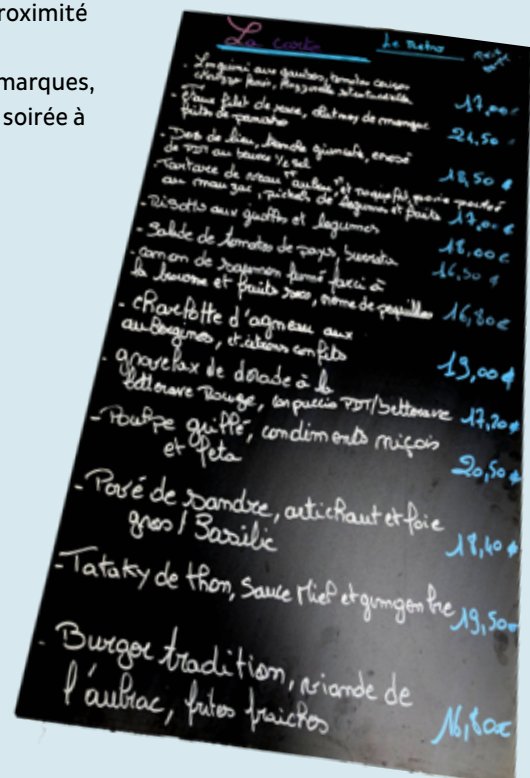 roximité
marques,
soirée à
La carte
Le Retro
- Linguini aux gambas, tomates cerises
chorizo, stracciatella
17,00€
- Faux filet de, chutney de mangue
frites de panisse
21,50
- Dos de lieu, écrasé
de PDT au beurre 1/2 sel
18,50€
- Tartare de veau "aubrac" et roquefort, poire
au mauzac, pickels de légumes et fruits
17,00€
- Risotto aux girolles et légumes
18,00€
- Salade de tomates de pays, burrata
16,50€
- canon de saumon fumé farci à
la brousse et fruits secs, crème de
16,80€
- charlotte d'agneau aux
aubergines, et citrons confits
19,00€
- gravelax de dorade à la
betterave Rouge, PDT/betterave
17,20€
- Poulpe grillé, condiments niçois
et feta
20,50€
- Pavé de sandre, artichaut et foie
gras / Basilic
18,40€
- Tataky de thon, Sauce Miel et gingembre
19,50€
- Burger tradition, viande de
l'aubrac, frites fraiches
16,80€